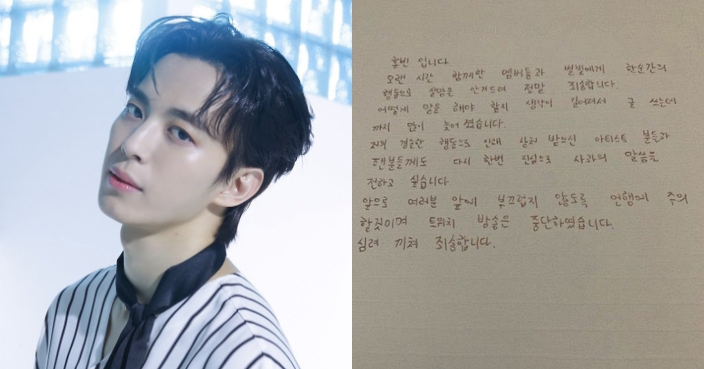 홍빈 입니다.
오랜 시간 함께한 멤버들과 별빛에게 한순간의
행동으로 실망을 안겨드려 정말 죄송합니다.
어떻게 말을 해야 할지 생각이 길어져서 글 쓰는데
까지 많이 늦어 졌습니다.
저의 경솔한 행동으로 인해 상처 받으신 아티스트 분들과
팬분들께도 다시 한번 진심으로 사과의 말씀을
전하고 싶습니다
앞으로 여러분 앞에 부끄럽지 않도록 언행에 주의
할것이며 트위치 방송은 중단하였습니다.
심려 끼쳐 죄송합니다.